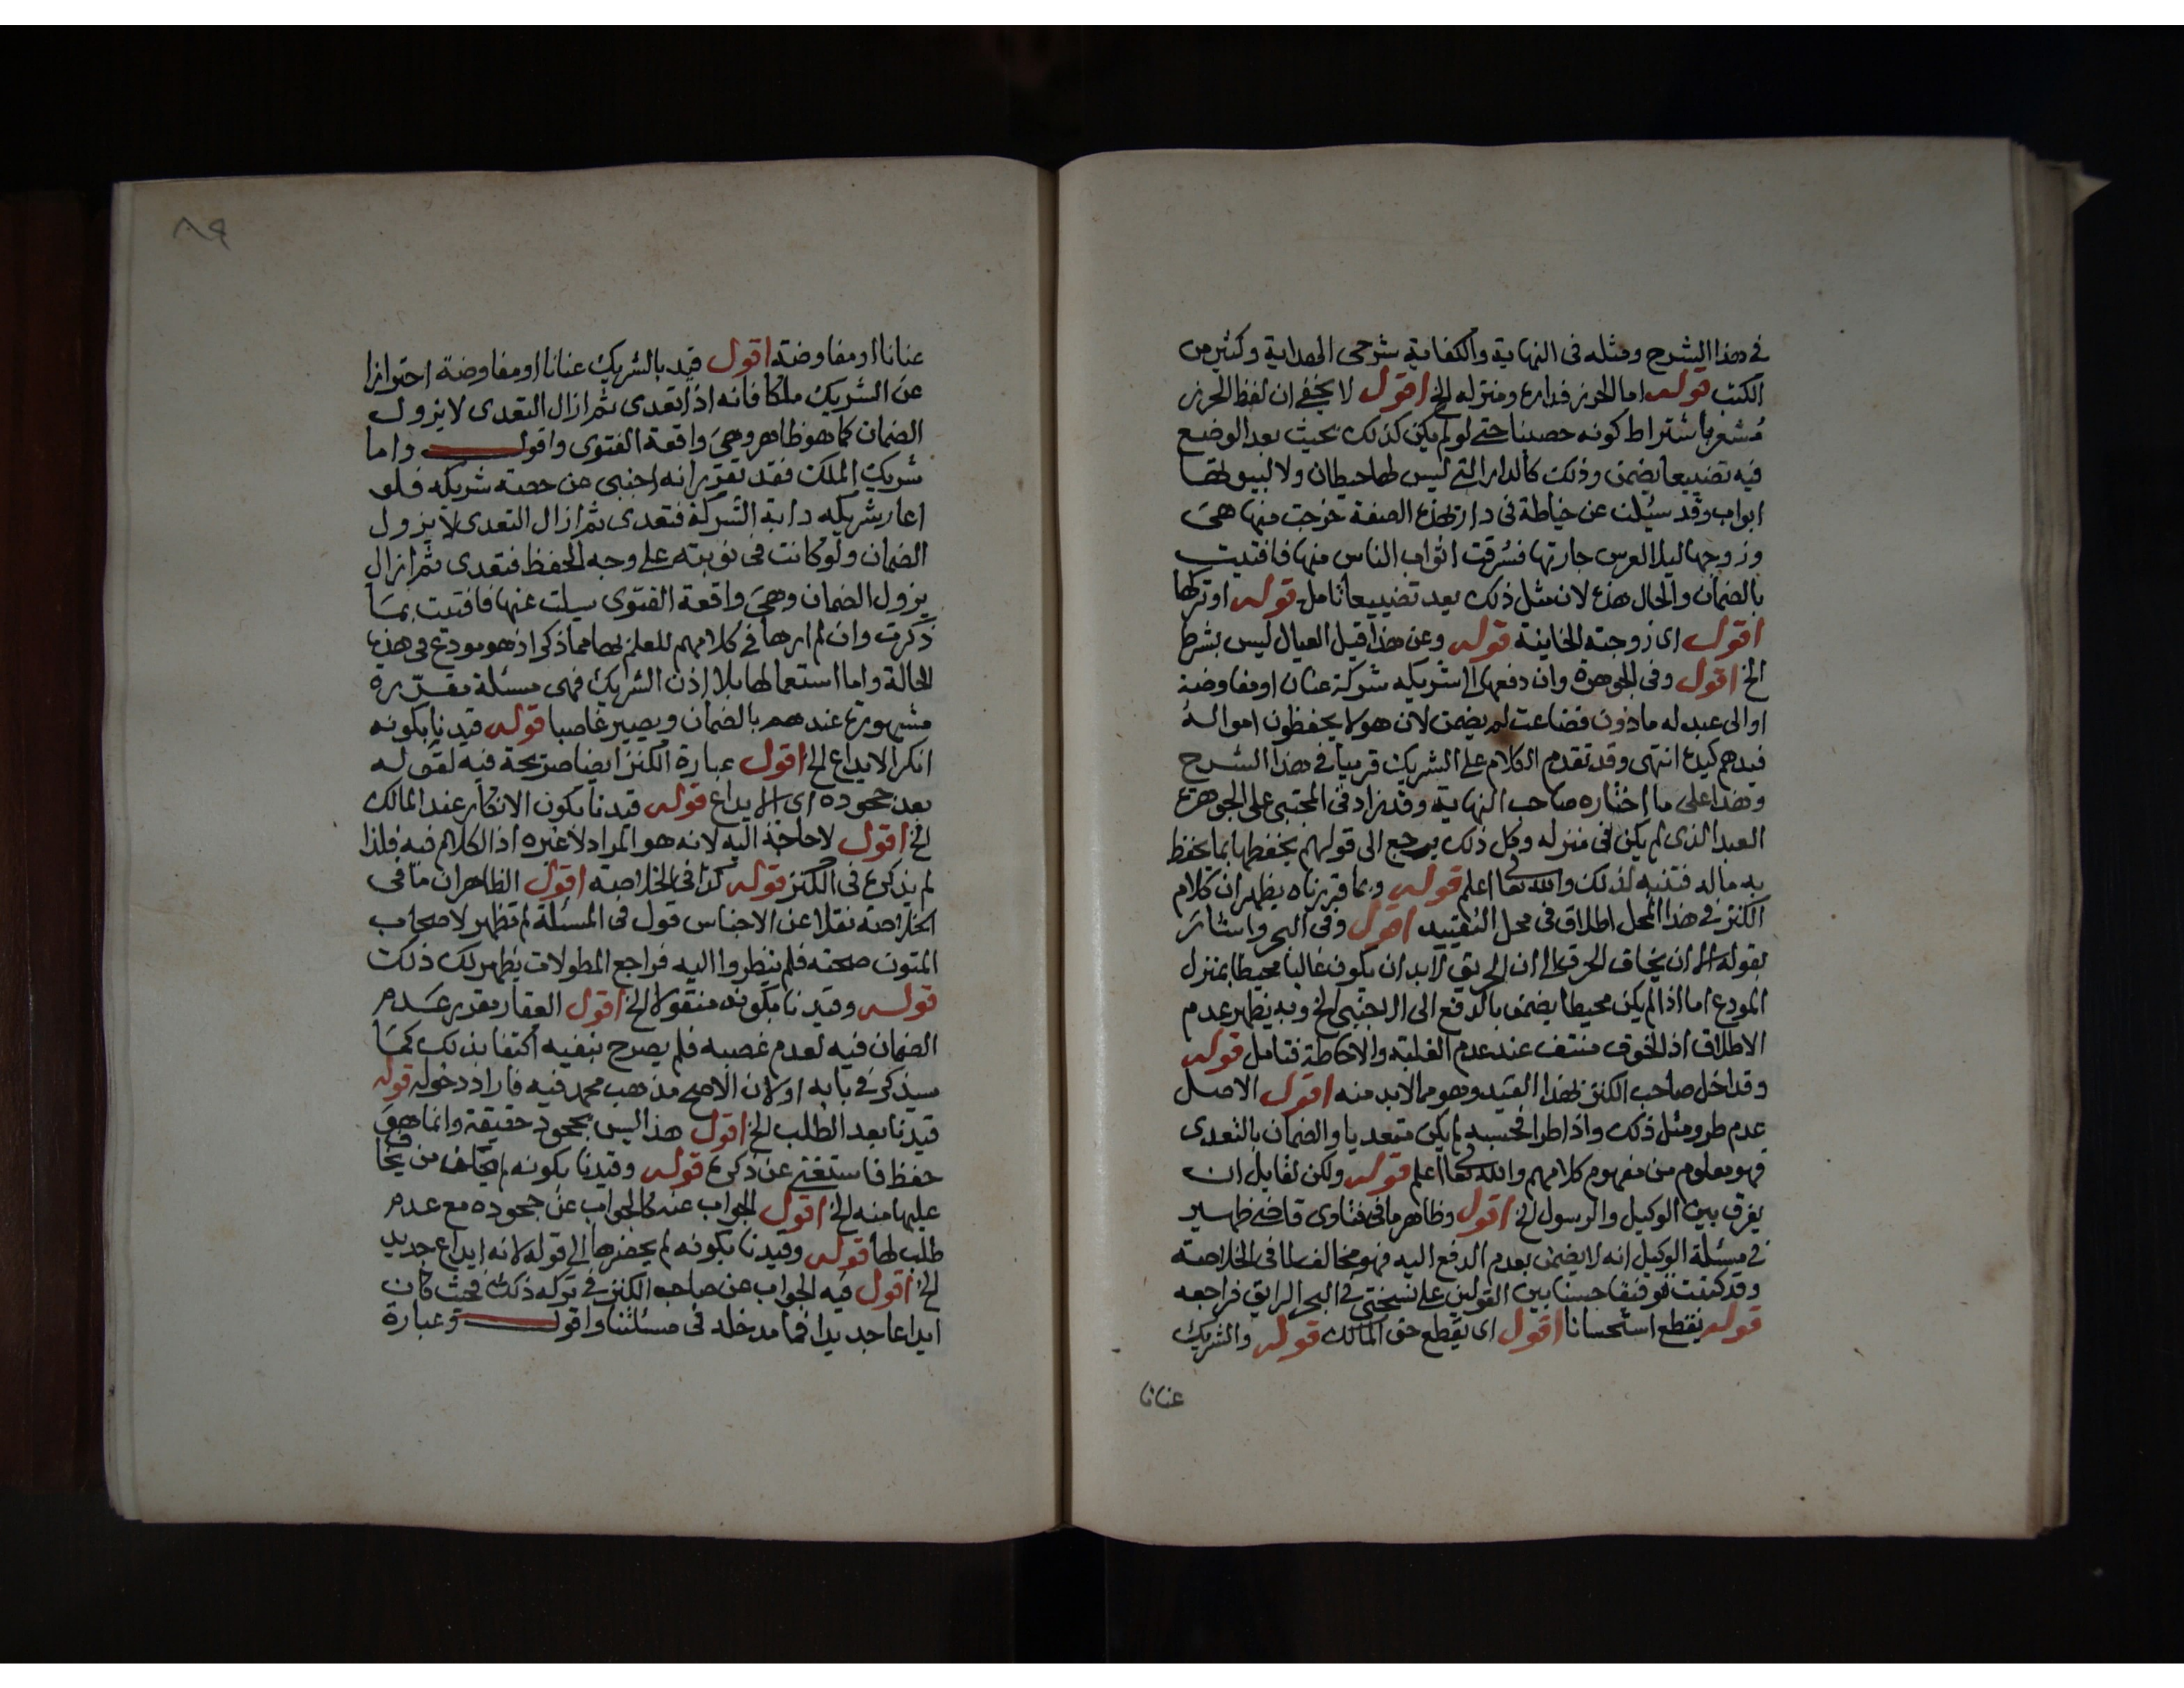 في هذا الشرح ومثله في النهاية والكفاية شرحي الهداية وكثير من
الكتب قوله اما الحرز فداره ومنزله الخ اقول لا يخفى ان لفظ الحرز
مشعر باشتراط كونه حصينا حتى لو لم يكن كذلك بحيث يعد الوضع
فيه تضييعا يضمن وذلك كالدار التي ليس لها حيطان ولا لبيوتها
ابواب وقد سئلت عن خياطة في دار بهذه الصفة خرجت منها هي
وزوجها ليلا لعرس جارتها فسرقت اثواب الناس منها فافتيت
بالضمان والحال هذه لان مثل ذلك يعد تضييعا تامل قوله او تركها
اقول اي زوجته الخاينة قوله وعن هذا قيل العيال ليس بشرط
الخ اقول وفي الجوهرة وان دفعها الى شريكه شركة عنان او مفاوضة
او الى عبد له ماذون فضاعت لم يضمن لان هولا يحفظون امواله
فيدهم كيده انتهى وقد تقدم الكلام على الشريك قريبا في هذا الشرح
وهذا على ما اختاره صاحب النهاية وقد زاد في المجتبى على الجوهرة
العبد الذي لم يكن في منزله وكل ذلك يرجع الى قولهم يحفظها بما يحفظ
به ماله فتنبه لذلك والله تعا اعلم قوله وبما قررناه يظهر ان كلام
الكنز في هذا المحل اطلاق في محل التقييد اقول وفي البحر واشار
بقوله الا ان يخاف الحرق الى ان الحريق لابد ان يكون غالبا محيطا بمنزل
المودع اما اذا لم يكن محيطا يضمن بالدفع الى الاجنبي الخ وبه يظهر عدم
الاطلاق اذ الخوف منتف عند عدم الغلبة والاحاطة فتامل قوله
وقد اخل صاحب الكنز بهذا القيد وهو مما لابد منه اقول الاصل
عدم طرو مثل ذلك واذا طرا فحبسه لم يكن متعديا والضمان بالتعدي
فهو معلوم من مفهوم كلامهم والله تعا اعلم قوله ولكن لقايل ان
يفرق بين الوكيل والرسول الخ اقول وظاهر ما في فتاوى قاضي ظهير
في مسئلة الوكيل انه لا يضمن بعدم الدفع اليه فهو مخالف لما في الخلاصة
وقد كتبت توفيقا حسنا بين القولين على نسختي في البحر الرايق فراجعه
قوله يقطع استحسانا اقول اي يقطع حق المالك قوله والشريك
عنانا
٨٩
عنانا او مفاوضة اقول قيد بالشريك عنانا او مفاوضة احترازا
عن الشريك ملكا فانه اذا تعدى ثم ازال التعدي لا يزول
الضمان كما هو ظاهر وهي واقعة الفتوى واقول واما
شريك الملك فقد تقرر انه اجنبي من حصة شريكه فلو
اعار شريكه دابة الشركة فتعدى ثم ازال التعدي لا يزول
الضمان ولو كانت في نوبته على وجه الحفظ فتعدى ثم ازال
يزول الضمان وهي واقعة الفتوى سيلت عنها فافتيت بما
ذكرت وان لم ارها في كلامهم للعلم بها مما ذكر اذ هو مودع في هذه
الحالة واما استعمالها بلا اذن الشريك فهي مسئلة مقررة
مشهورة عندهم بالضمان ويصير غاصبا قوله قيدنا بكونه
انكر الايداع الخ اقول عبارة الكنز ايضا صريحة فيه لقوله
بعد جحوده اي الايداع قوله قيدنا بكون الانكار عند المالك
الخ اقول لا حاجة اليه لانه هو المراد لا غيره اذ الكلام فيه فلذا
لم يذكره في الكنز قوله كذا في الخلاصة اقول الظاهر ان ما في
الخلاصة نقلا عن الاجناس قول في المسئلة لم تظهر لاصحاب
المتون صحته فلم ينظروا اليه فراجع المطولات يظهر لك ذلك
قوله وقيدنا بكونه منقولا الخ اقول العقار مقدر عدم
الضمان فيه لعدم غصبه فلم يصرح بنفيه اكتفا بذلك كما
سيذكر في بابه او لان الاصح مذهب محمد فيه فاراد دخوله قوله
قيدنا بعد الطلب الخ اقول هذا ليس بجحود حقيقة وانما هو
حفظ فاستغنى عن ذكره قوله وقيدنا بكونه لم يكن من يخاف
عليها منه الخ اقول الجواب عنه كالجواب عن جحوده مع عدم
طلب لها قوله وقيدنا بكونه لم يحضرها الى قوله لانه ايداع جديد
الخ اقول فيه الجواب عن صاحب الكنز في تركه ذلك فحيث كان
ايداعا جديدا فما مدخله في مسئلتنا واقول وعبارة